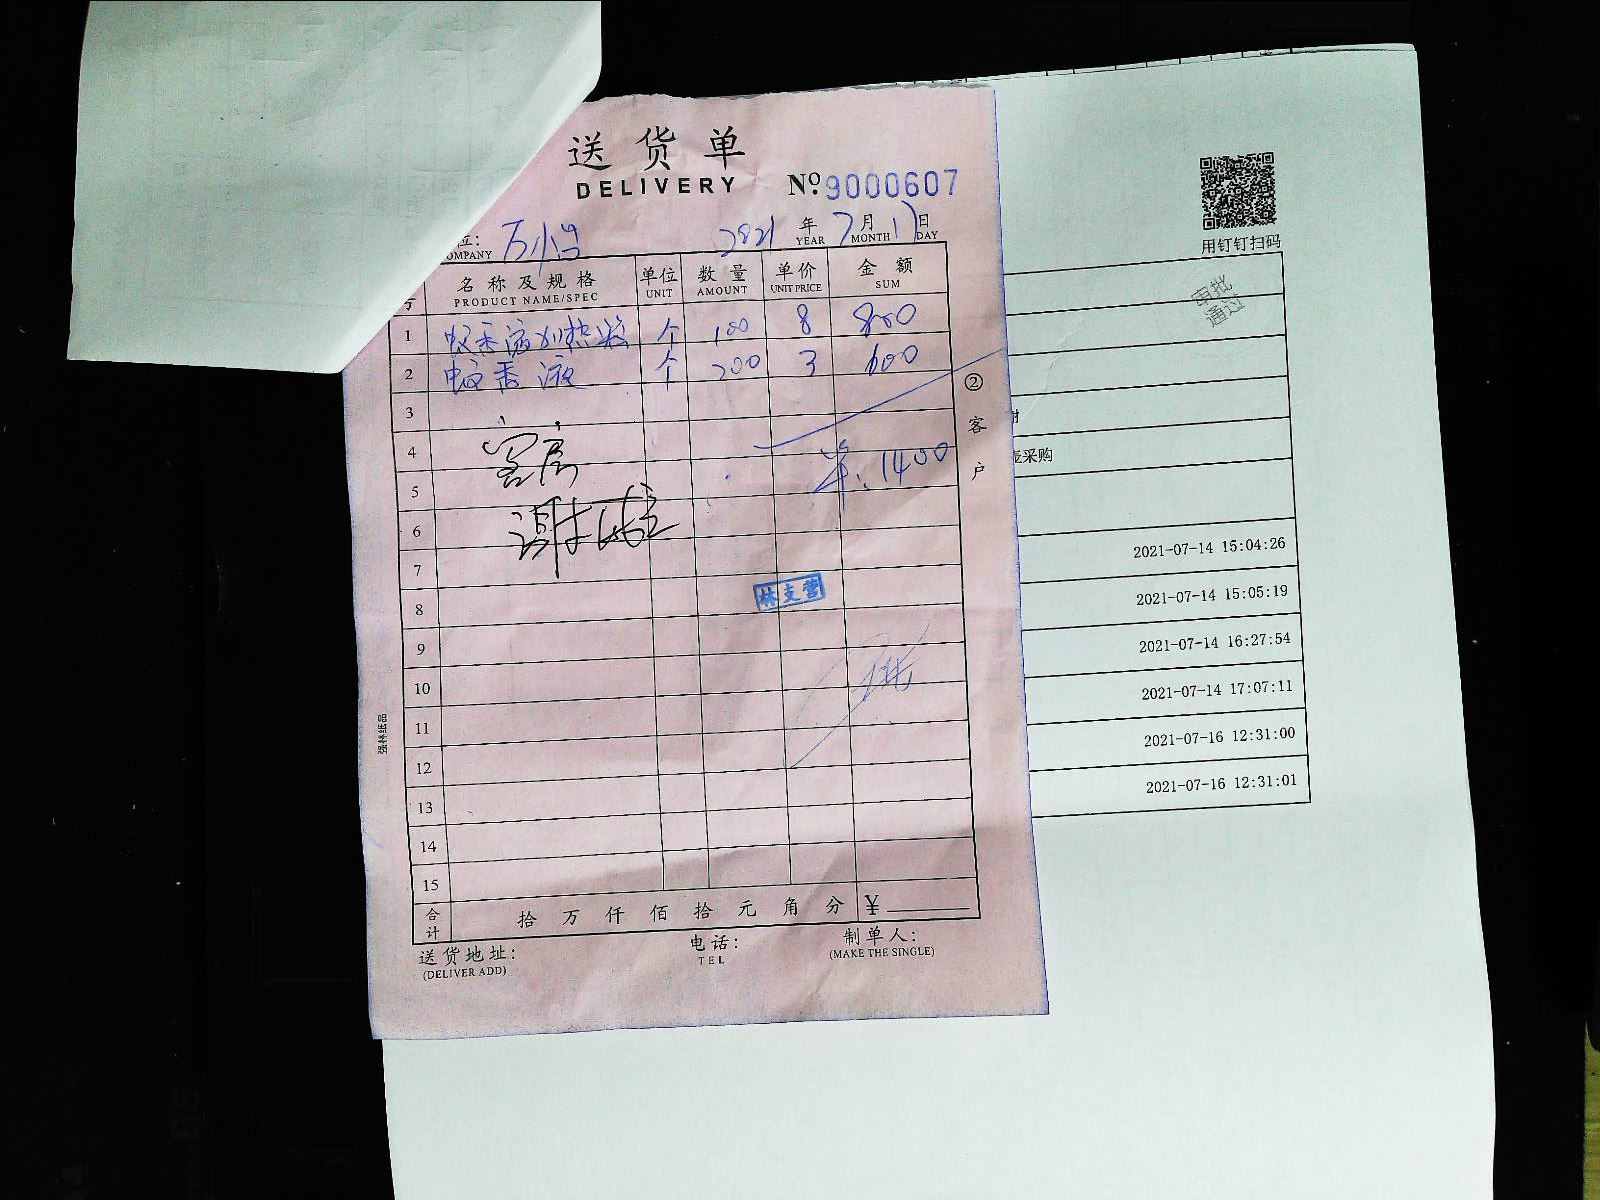 送货单
DELIVERY
№ 9000607
位:
OMPANY
2021 年 7 月 17 日
YEAR MONTH DAY
号 名称及规格 单位 数量 单价 金额
PRODUCT NAME/SPEC UNIT AMOUNT UNIT PRICE SUM
1 蚊香液加热器 个 100 8 800
2 蚊香液 个 200 3 600
3
4 客房
5 1400
6 谢
7
8 林支营
9
10
11
12
13
14
15
合计 拾 万 仟 佰 拾 元 角 分 ¥
送货地址: 电话: 制单人:
(DELIVER ADD) TEL (MAKE THE SINGLE)
② 客户
强林纸品
用钉钉扫码
审批
通过
采购
2021-07-14 15:04:26
2021-07-14 15:05:19
2021-07-14 16:27:54
2021-07-14 17:07:11
2021-07-16 12:31:00
2021-07-16 12:31:01